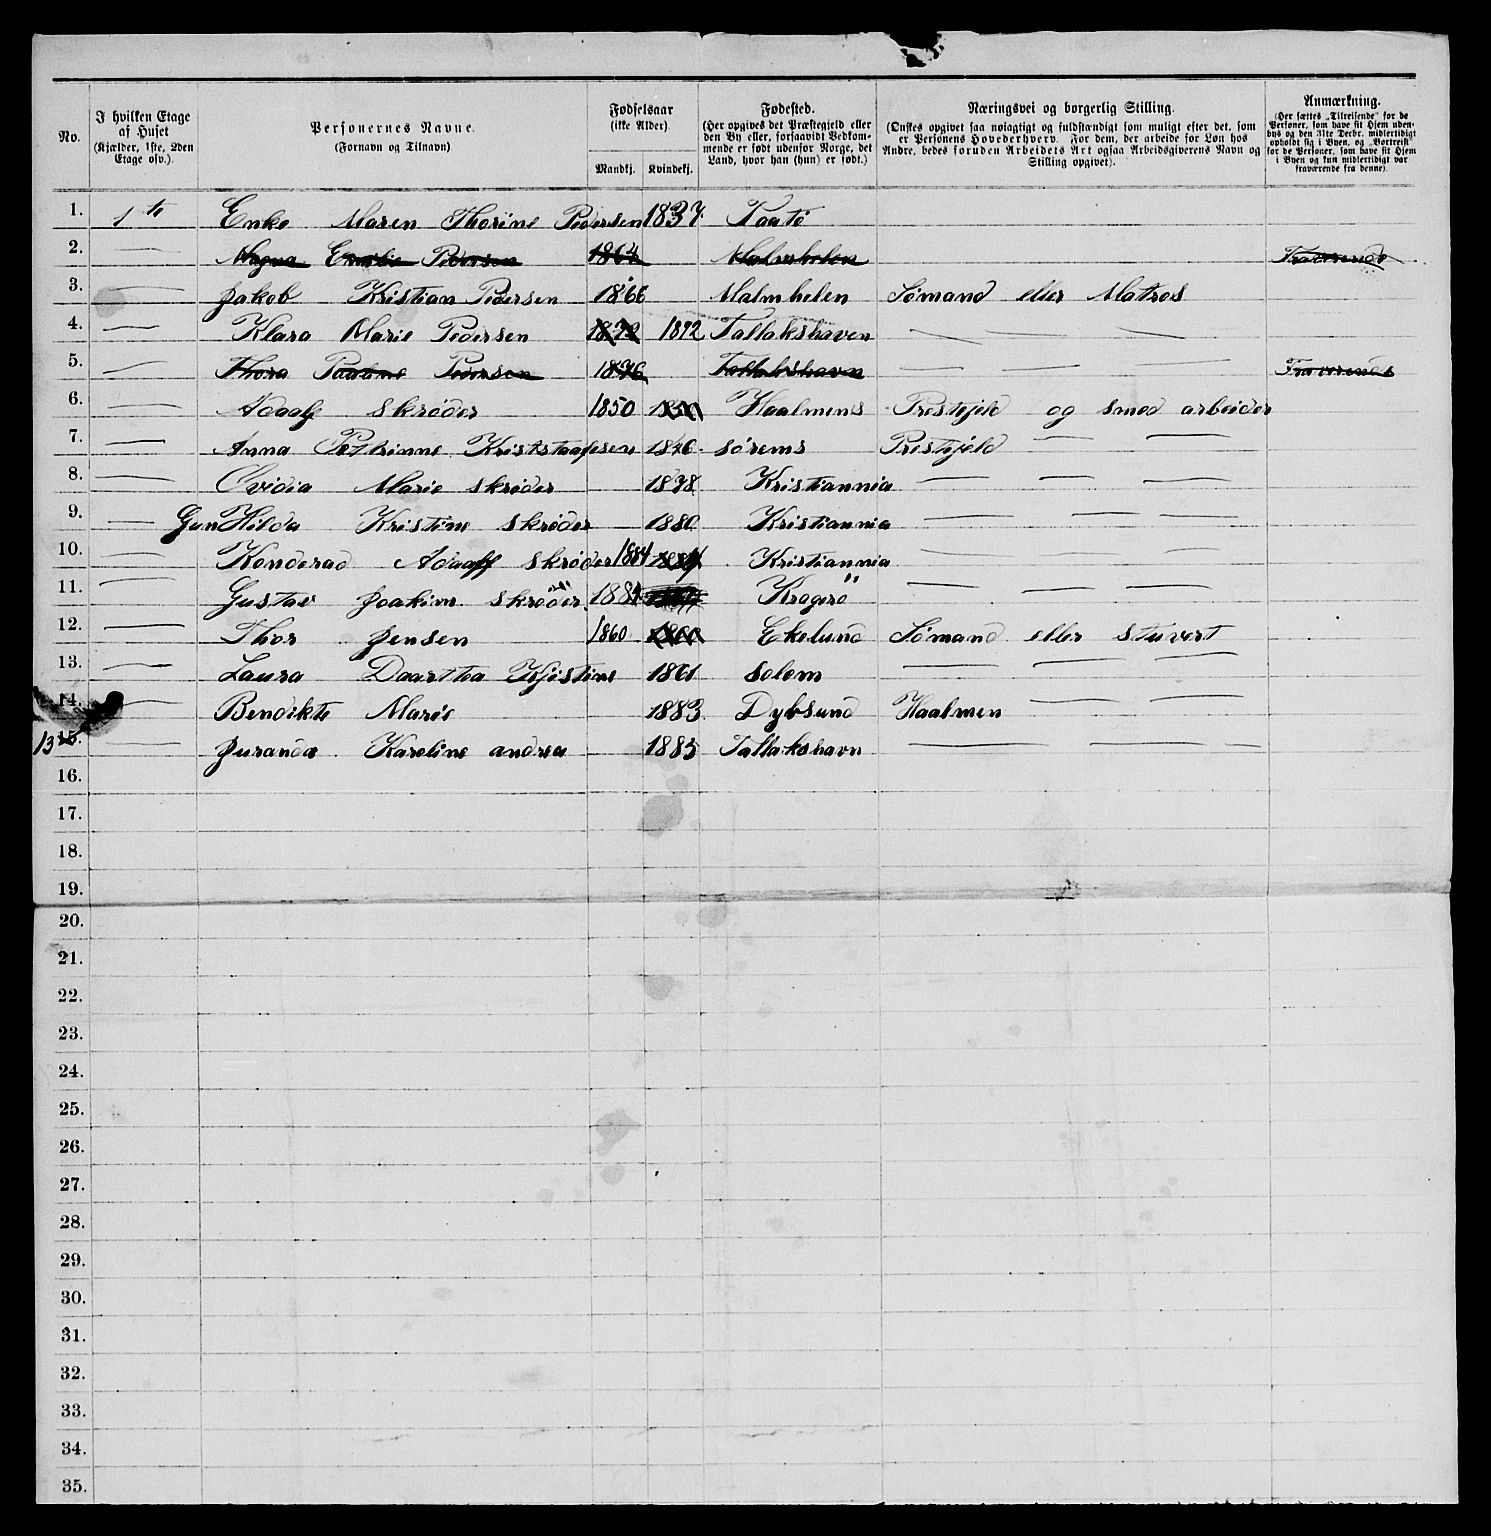 No. | I hvilken Etage af Huset (Kjælder, 1ste, 2den Etage osv.). | Personernes Navne. (Fornavn og Tilnavn) | Fødselsaar (ikke Alder). Mandkj. Kvindekj. | Fødested. (Her opgives det Præstegjeld eller den By eller, forsaavidt Vedkommende er født udenfor Norge, det Land, hvor han (hun) er født.) | Næringsvei og borgerlig Stilling. (Ønskes opgivet saa nøiagtigt og fuldstændigt som muligt efter det, som er Personens Hovederhverv. For dem, der arbeide for Løn hos Andre, bedes foruden Arbeidets Art ogsaa Arbeidsgiverens Navn og Stilling opgivet). | Anmærkning. (Her sættes „Tilreisende" for de Personer, som have sit Hjem udenbys og den 31te Decbr. midlertidigt opholdt sig i Byen, og „Bortreist" for de Personer, som have sit Hjem i Byen og kun midlertidigt var fraværende fra denne).
1. 1te Enke Maren Thorine Pedersen 1837 Taatø
2. — Magna Emilie Pedersen 1864 Malmhelen Fraverende
3. — Jakob Kristian Pedersen 1866 Malmhelen Sømand eller Matros
4. — Klara Marie Pedersen 1872 1872 Tallakshaven — — —
5. — Thora Pedersen 1876 Tallakshavn — — — Fraverende
6. — Adaalf Skrøder 1850 1850 Haalmens Prestejeld og smed arbeider
7. — Anna Petrinne Kriststaafesen 1846 sørems Prestejeld — —
8. — Ovidia Marie Skrøder 1878 Kristiannia — — —
9. — Gun Hilda Kristine Skrøder — 1880 Kristiannia — — —
10. — Konderad Adaaff Skrøder 1884 1884 Kristiannia — —
11. — Gustav Joakim Skrøder 1884 Kragerö — — —
12. — Thor Jensen 1860 1860 Ekelund Sømand eller stuvert
13. — Laura Daartea Kjistine 1861 Solem — — —
14. — Bendikte Marie 1883 Dybsund Haalmen — —
15. 13 — Juranda Karoline andrea — 1885 Tallakshavn — — —
16.
17.
18.
19.
20.
21.
22.
23.
24.
25.
26.
27.
28.
29.
30.
31.
32.
33.
34.
35.